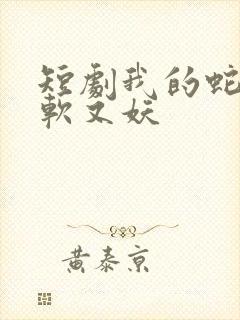 短劇我的蛇
軟又妖
黃泰京